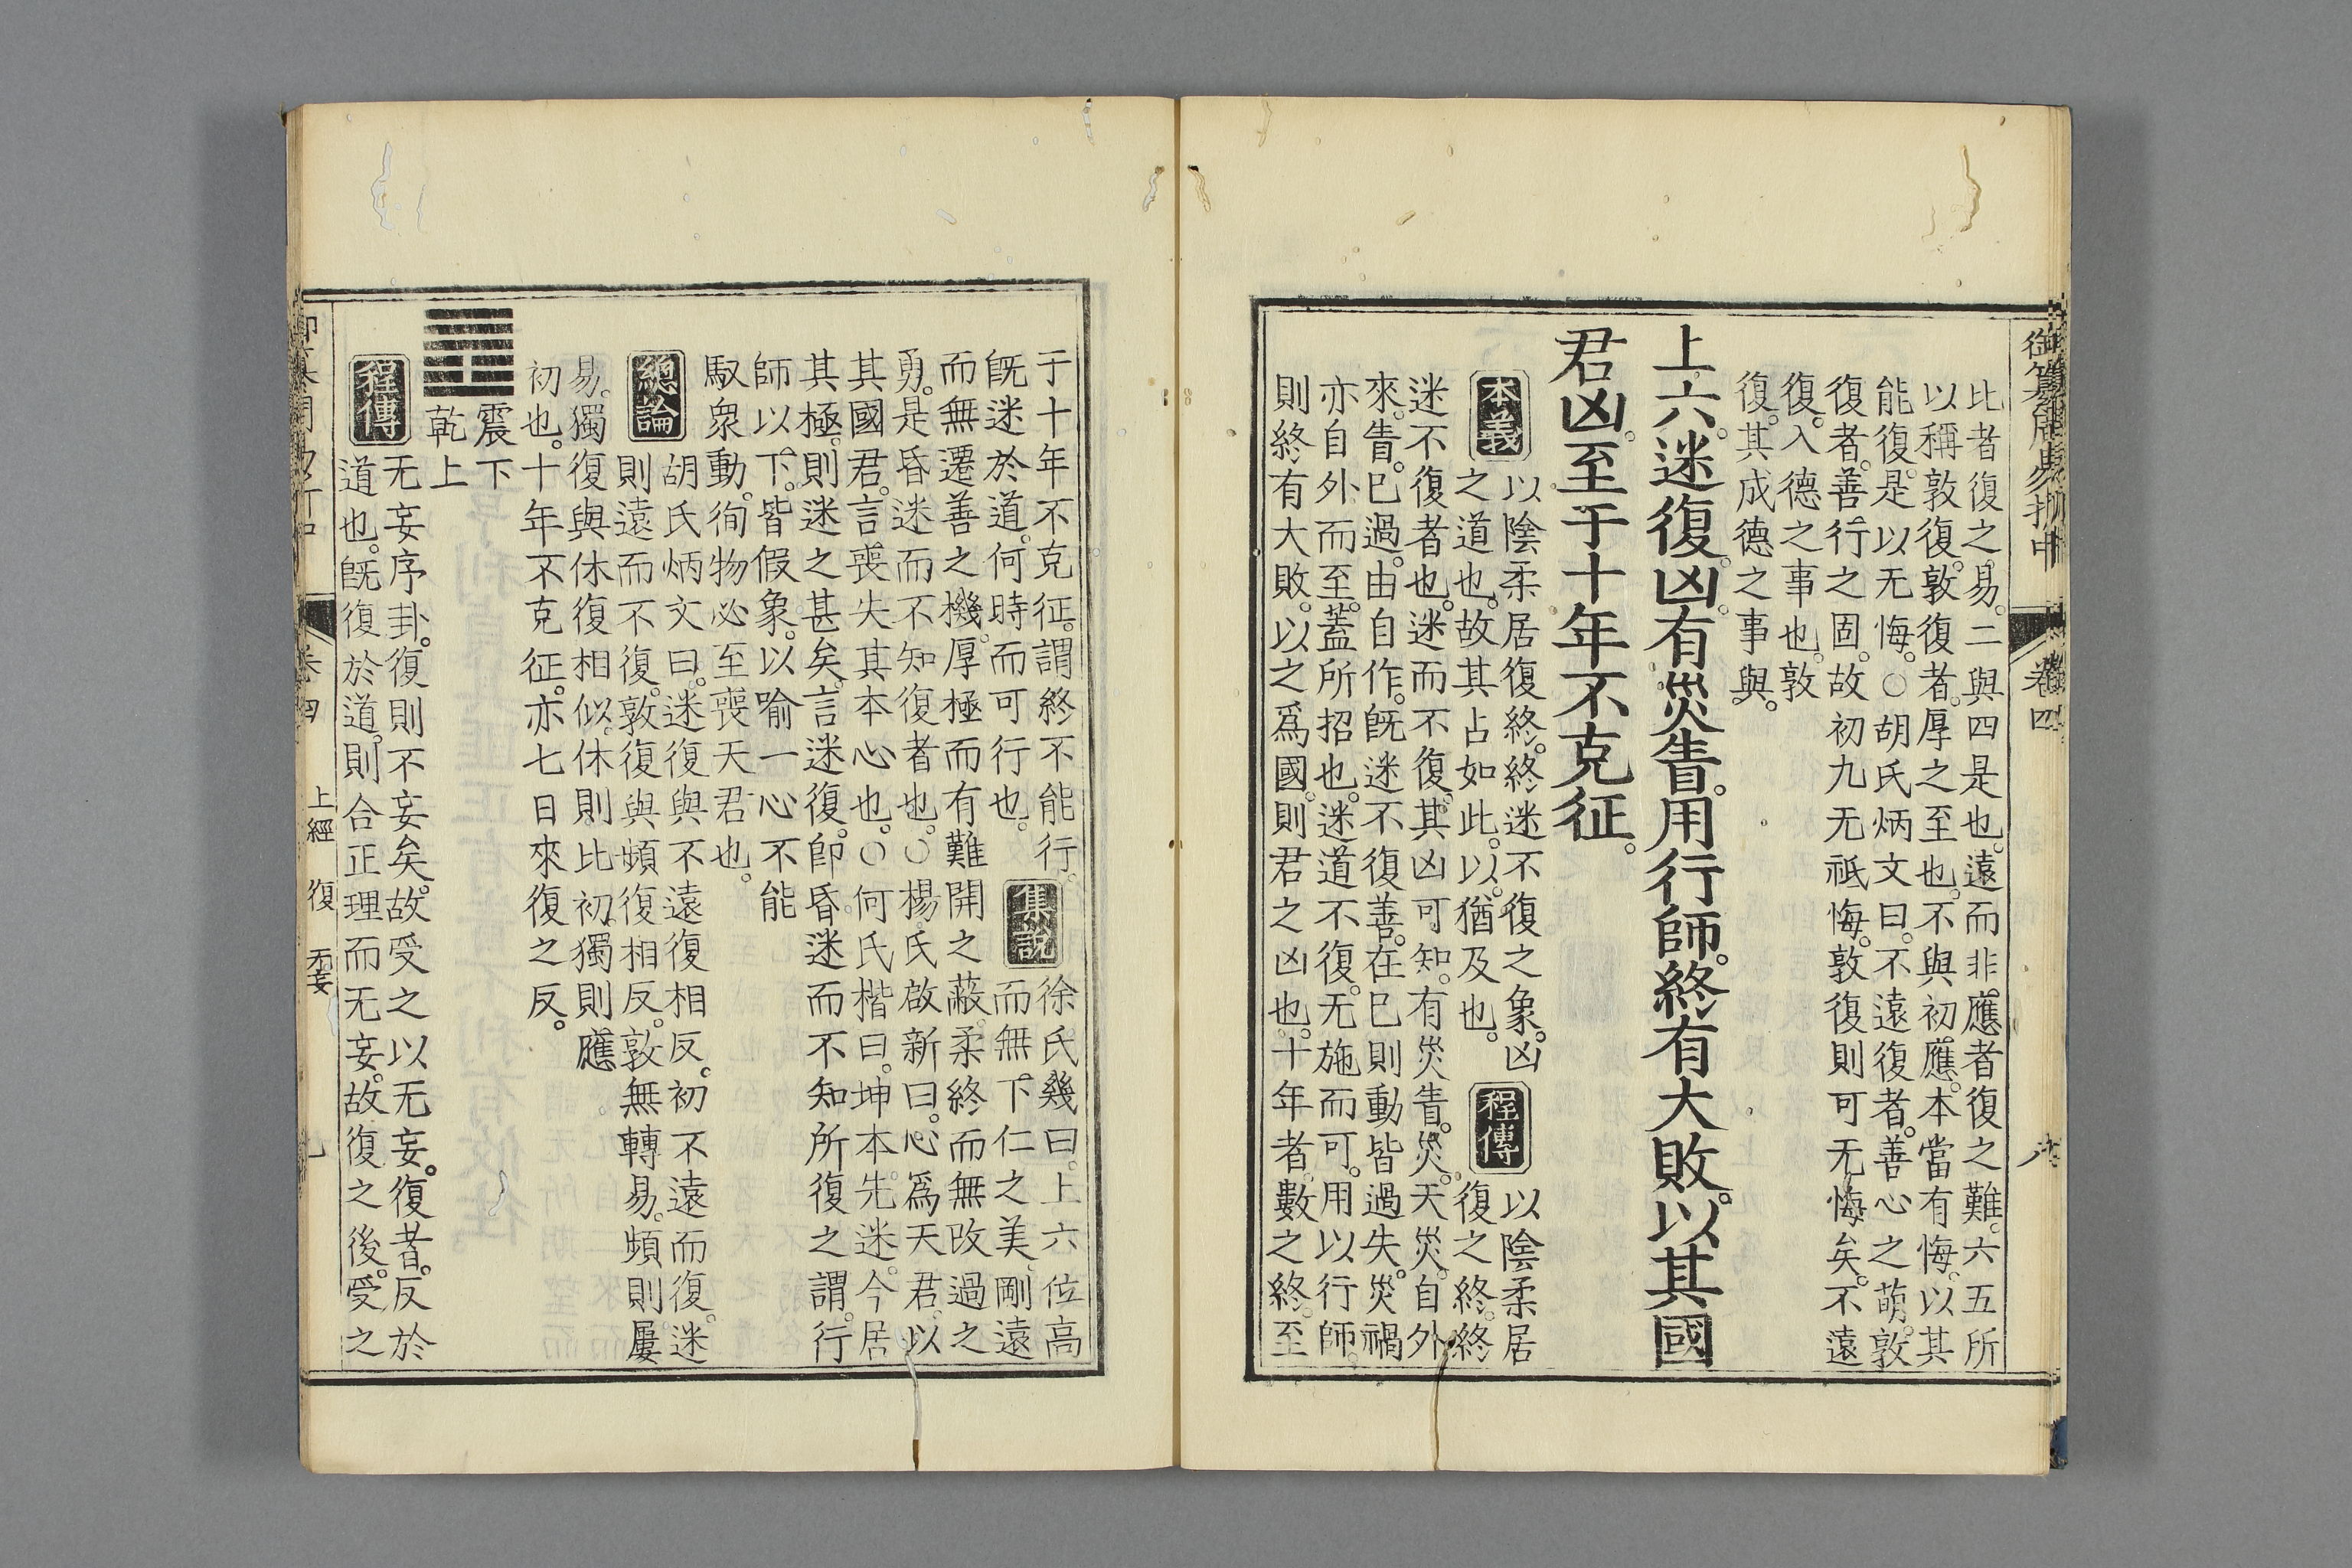 御纂周易折中 卷四
比者復之易。二與四是也。遠而非應者復之難。六五所
以稱敦復。敦復者。厚之至也。不與初應。本當有悔。以其
能復。是以无悔。○胡氏炳文曰。不遠復者。善心之萌。敦
復者。善行之固。故初九无祗悔。敦復則可无悔矣。不遠
復。入德之事也。敦
復。其成德之事與。
上六。迷復。凶。有災眚。用行師。終有大敗。以其國
君凶。至于十年不克征。
本義
以陰柔居復終。終迷不復之象。凶
之道也。故其占如此。以。猶及也。
程傳
以陰柔居
復之終。終
迷不復者也。迷而不復。其凶可知。有災眚。災。天災。自外
來。眚。己過。由自作。旣迷不復善。在己則動皆過失。災禍
亦自外而至。蓋所招也。迷道不復。无施而可。用以行師。
則終有大敗。以之爲國。則君之凶也。十年者。數之終。至
于十年不克征。謂終不能行。
旣迷於道。何時而可行也。
集說
徐氏幾曰。上六位高
而無下仁之美。剛遠
而無遷善之機。厚極而有難開之蔽。柔終而無改過之
勇。是昏迷而不知復者也。○楊氏啟新曰。心爲天君。以
其國君。言喪失其本心也。○何氏楷曰。坤本先迷。今居
其極。則迷之甚矣。言迷復。卽昏迷而不知所復之謂。行
師以下。皆假象。以喻一心不能
馭衆動。徇物必至喪天君也。
總論
胡氏炳文曰。迷復與不遠復相反。初不遠而復。迷
則遠而不復。敦復與頻復相反。敦無轉易。頻則屢
易。獨復與休復相似。休則比初。獨則應
初也。十年不克征。亦七日來復之反。
震下
乾上
程傳
无妄序卦。復則不妄矣。故受之以无妄。復者。反於
道也。旣復於道。則合正理而无妄。故復之後。受之
卷四 上經 復 无妄